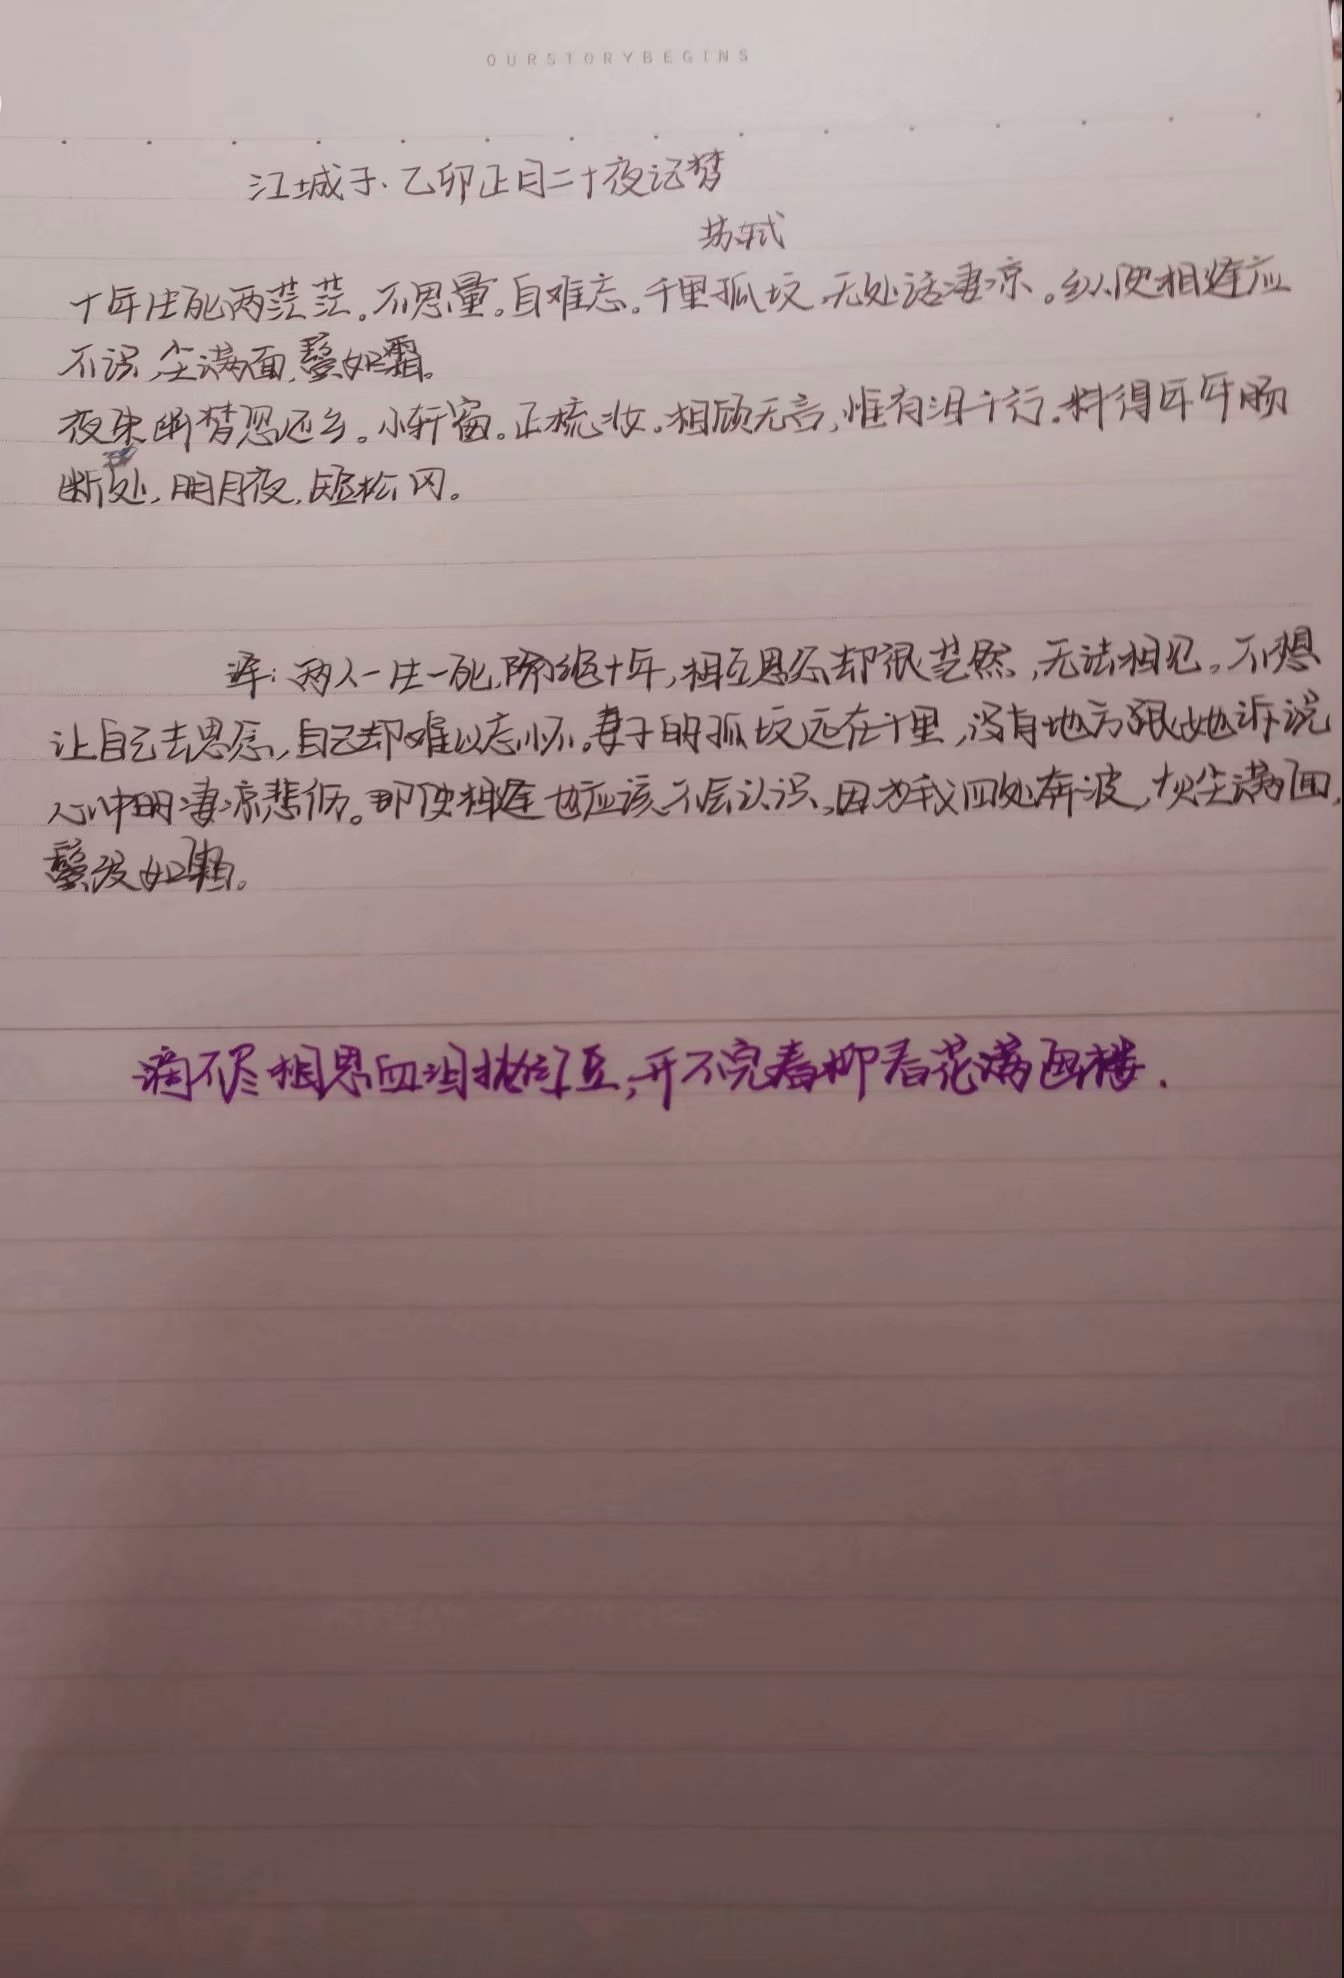 OURSTORYBEGINS
江城子·乙卯正月二十夜记梦
苏轼
十年生死两茫茫。不思量。自难忘。千里孤坟,无处话凄凉。纵使相逢应
不识,尘满面,鬓如霜。
夜来幽梦忽还乡。小轩窗。正梳妆。相顾无言,惟有泪千行.料得年年肠
断处,明月夜,短松冈。
译:两人一生一死,隔绝十年,相互思念却很茫然,无法相见。不想
让自己去思念,自己却难以忘怀。妻子的孤坟远在千里,没有地方跟她诉说
心中的凄凉悲伤。即使相逢也应该不会认识,因为我四处奔波,灰尘满面,
鬓发如霜。
滴不尽相思血泪抛红豆,开不完春柳春花满画楼.